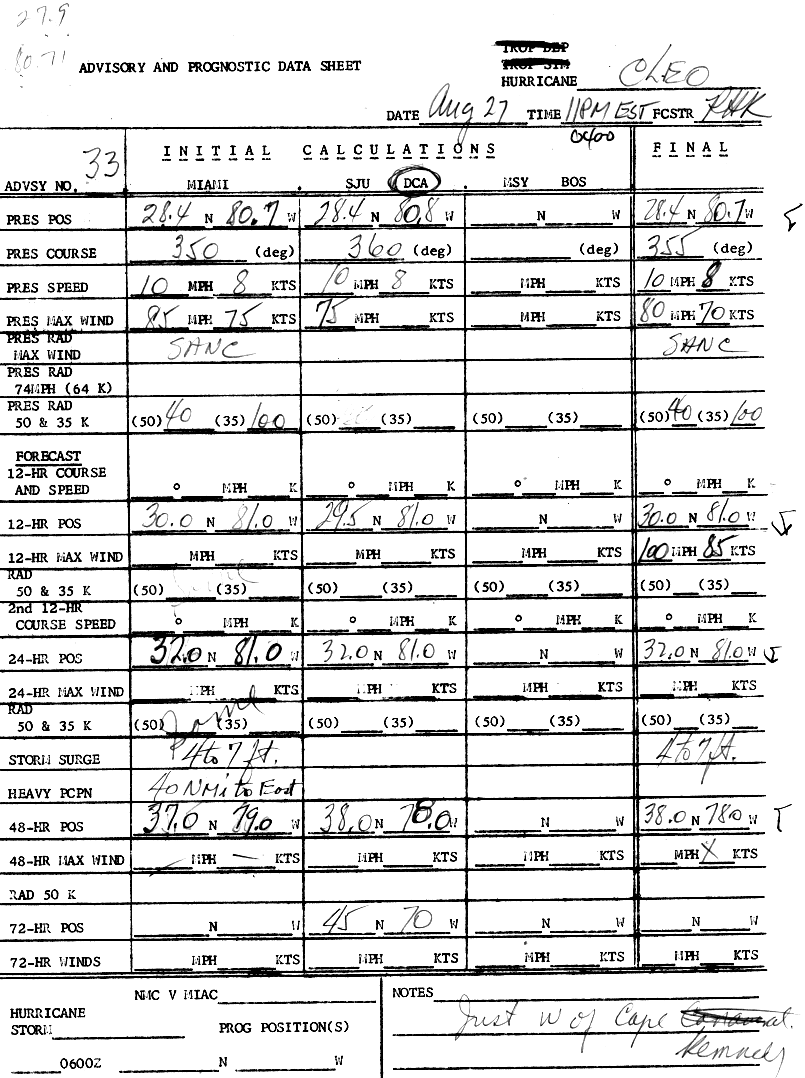 27.9
80.71
TROP DEP
TROP STM
ADVISORY AND PROGNOSTIC DATA SHEET HURRICANE CLEO
DATE Aug 27 TIME 11PM EST FCSTR RHK
0400
ADVSY NO. 33 INITIAL CALCULATIONS FINAL
MIAMI . SJU DCA . MSY BOS
PRES POS 28.4 N 80.7 W 28.4 N 80.8 W N W 28.4 N 80.7 W
PRES COURSE 350 (deg) 360 (deg) (deg) 355 (deg)
PRES SPEED 10 MPH 8 KTS 10 MPH 8 KTS MPH KTS 10 MPH 8 KTS
PRES MAX WIND 85 MPH 75 KTS 75 MPH KTS MPH KTS 80 MPH 70 KTS
PRES RAD
MAX WIND SANC SANC
PRES RAD
74MPH (64 K)
PRES RAD
50 & 35 K (50) 40 (35) 100 (50) (35) (50) (35) (50) 40 (35) 100
FORECAST
12-HR COURSE
AND SPEED ° MPH K ° MPH K ° MPH K ° MPH K
12-HR POS 30.0 N 81.0 W 29.5 N 81.0 W N W 30.0 N 81.0 W
12-HR MAX WIND MPH KTS MPH KTS MPH KTS 100 MPH 85 KTS
RAD
50 & 35 K (50) (35) (50) (35) (50) (35) (50) (35)
2nd 12-HR
COURSE SPEED ° MPH K ° MPH K ° MPH K ° MPH K
24-HR POS 32.0 N 81.0 W 32.0 N 81.0 W N W 32.0 N 81.0 W
24-HR MAX WIND MPH KTS MPH KTS MPH KTS MPH KTS
RAD
50 & 35 K (50) (35) (50) (35) (50) (35) (50) (35)
STORM SURGE 4 to 7 ft. 4 to 7 ft.
HEAVY PCPN 40 NMi to East
48-HR POS 37.0 N 79.0 W 38.0 N 78.0 W N W 38.0 N 78.0 W
48-HR MAX WIND — MPH — KTS MPH KTS MPH KTS MPH X KTS
RAD 50 K
72-HR POS N W 45 N 70 W N W N W
72-HR WINDS MPH KTS MPH KTS MPH KTS MPH KTS
NMC V MIAC NOTES
HURRICANE
STORM PROG POSITION(S) Just W of Cape Canaveral.
Kennedy
0600Z N W